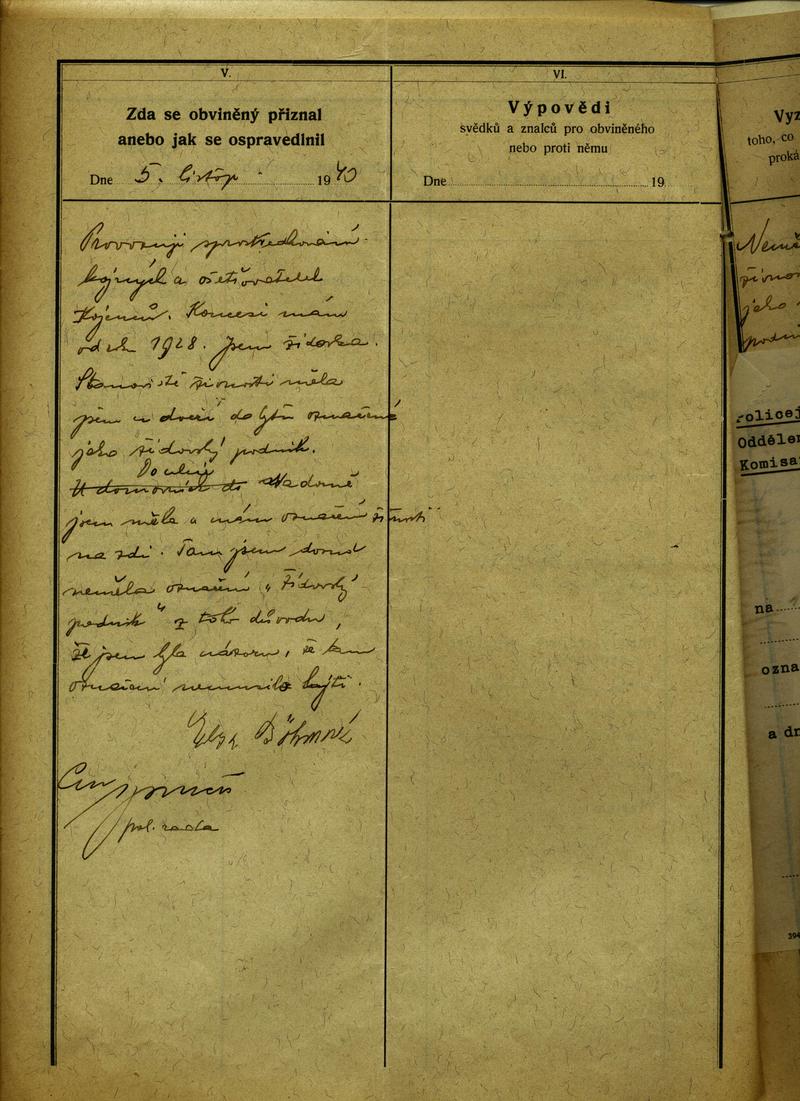 V.
Zda se obviněný přiznal
anebo jak se ospravedlnil
Dne 5. listop. 1940
Provozuji zprostředkování
kojných a ošetřovatelek
kojenců. Koncesi mám
od r. 1928. Jsem židovka.
živnosti měla
jsem u dveří do bytu označené
jako židovský podnik.
Do ulice
U domovních do Na domě
jsem měla a mám označení živnosti
na zdi. Tam jsem dosud
neměla označení „židovský
podnik" z toho důvodu,
že jsem byla názoru, že tam
označení nemusilo býti.
Elsa Böhmová
pol. rada
VI.
Výpovědi
svědků a znalců pro obviněného
nebo proti němu
Dne 19
Vyz
toho, co
proká
jako
policej
Oddělen
Komisa
na
ozna
a dr
394